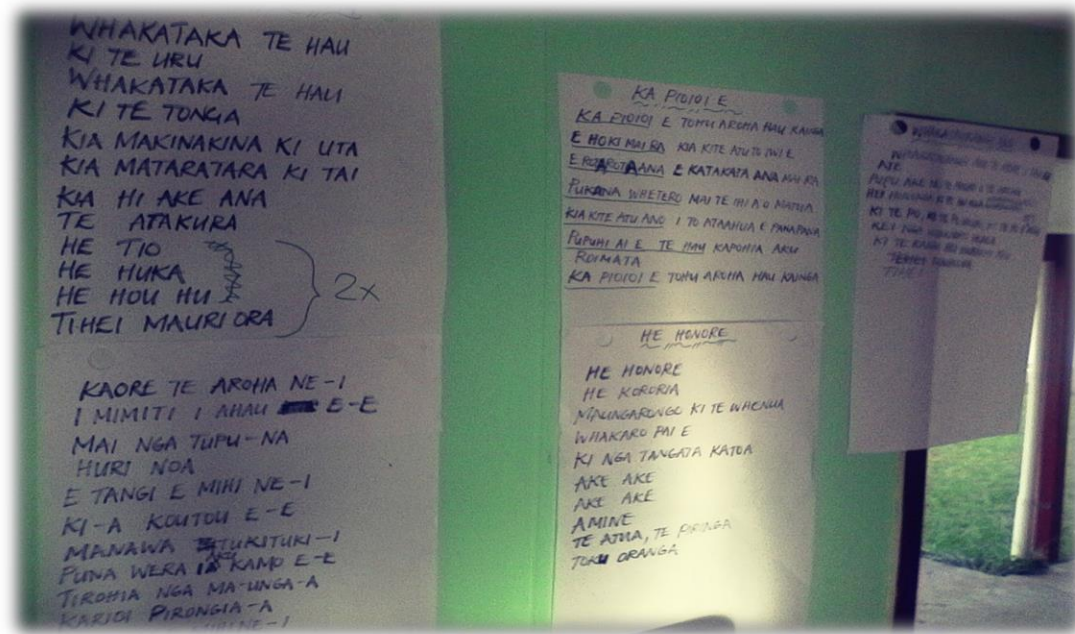 WHAKATAKA TE HAU
KI TE URU
WHAKATAKA TE HAU
KI TE TONGA
KIA MAKINAKINA KI UTA
KIA MATARATARA KI TAI
KIA HI AKE ANA
TE ATAKURA
HE TIO
HE HUKA
HE HOU HU
TIHEI MAURI ORA
2x
KAORE TE AROHA NE-I
I MIMITI I AHAU E-E
MAI NGA TUPU-NA
HURI NOA
E TANGI E MIHI NE-I
KI-A KOUTOU E-E
MANAWA TUKITUKI-I
PUNA WERA KAMO E-E
TIROHIA NGA MA-UNGA-A
KARIOI PIRONGIA-A
KA PIOIOI E
KA PIOIOI E TOHU AROHA HAU KAINGA
E HOKI MAI RA KIA KITE ATU TO IWI E
E ROTAROTA ANA E KATAKATA ANA MAI RA
PUKANA WHETERO MAI TE IHI A O MATUA
KIA KITE ATU ANO I TO ATAAHUA E PANAPANA
PUPUHI AI E TE HAU KAPOHIA AKU
ROIMATA
KA PIOIOI E TOHU AROHA HAU KAINGA
HE HONORE
HE HONORE
HE KORORIA
MAUNGARONGO KI TE WHENUA
WHAKARO PAI E
KI NGA TANGATA KATOA
AKE AKE
AKE AKE
AMINE
TE ATUA, TE PIRINGA
TOKU ORANGA
PUPU AKE
KI TE PO
TIHEI